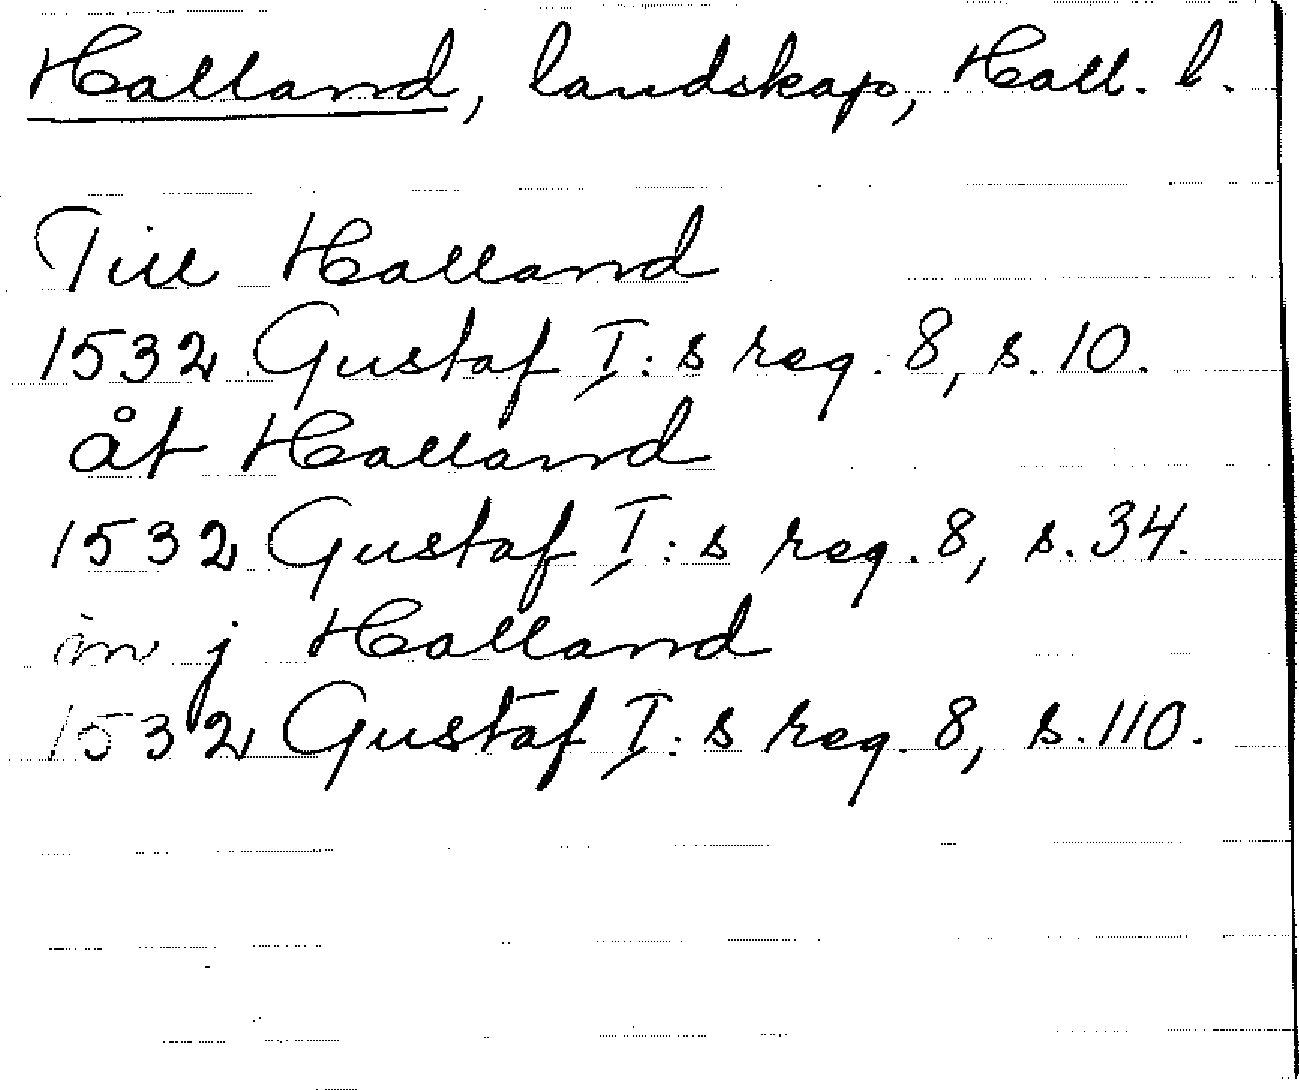 Halland, landskap, Hall. l.
Till Halland
1532 Gustaf I:s reg. 8, s. 10.
åt Halland
1532 Gustaf I:s reg. 8, s. 34.
in j Halland
1532 Gustaf I:s reg. 8, s. 110.